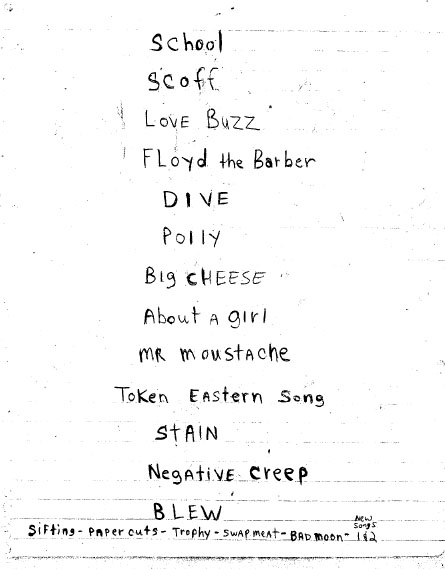 School
Scoff
LOVE BUZZ
FLoyd the Barber
DIVE
Polly
Big CHEESE
About A girl
MR MoustAche
Token EAstern Song
STAIN
NegAtivE creep
BLEW
NEW
Songs
Sifting - PAper cuts - Trophy - SWAP MEAt - BAD moon - 1&2